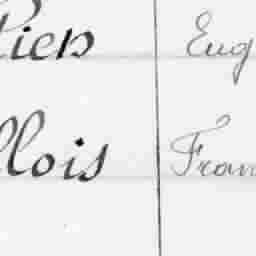 liers Eug
llois Fran